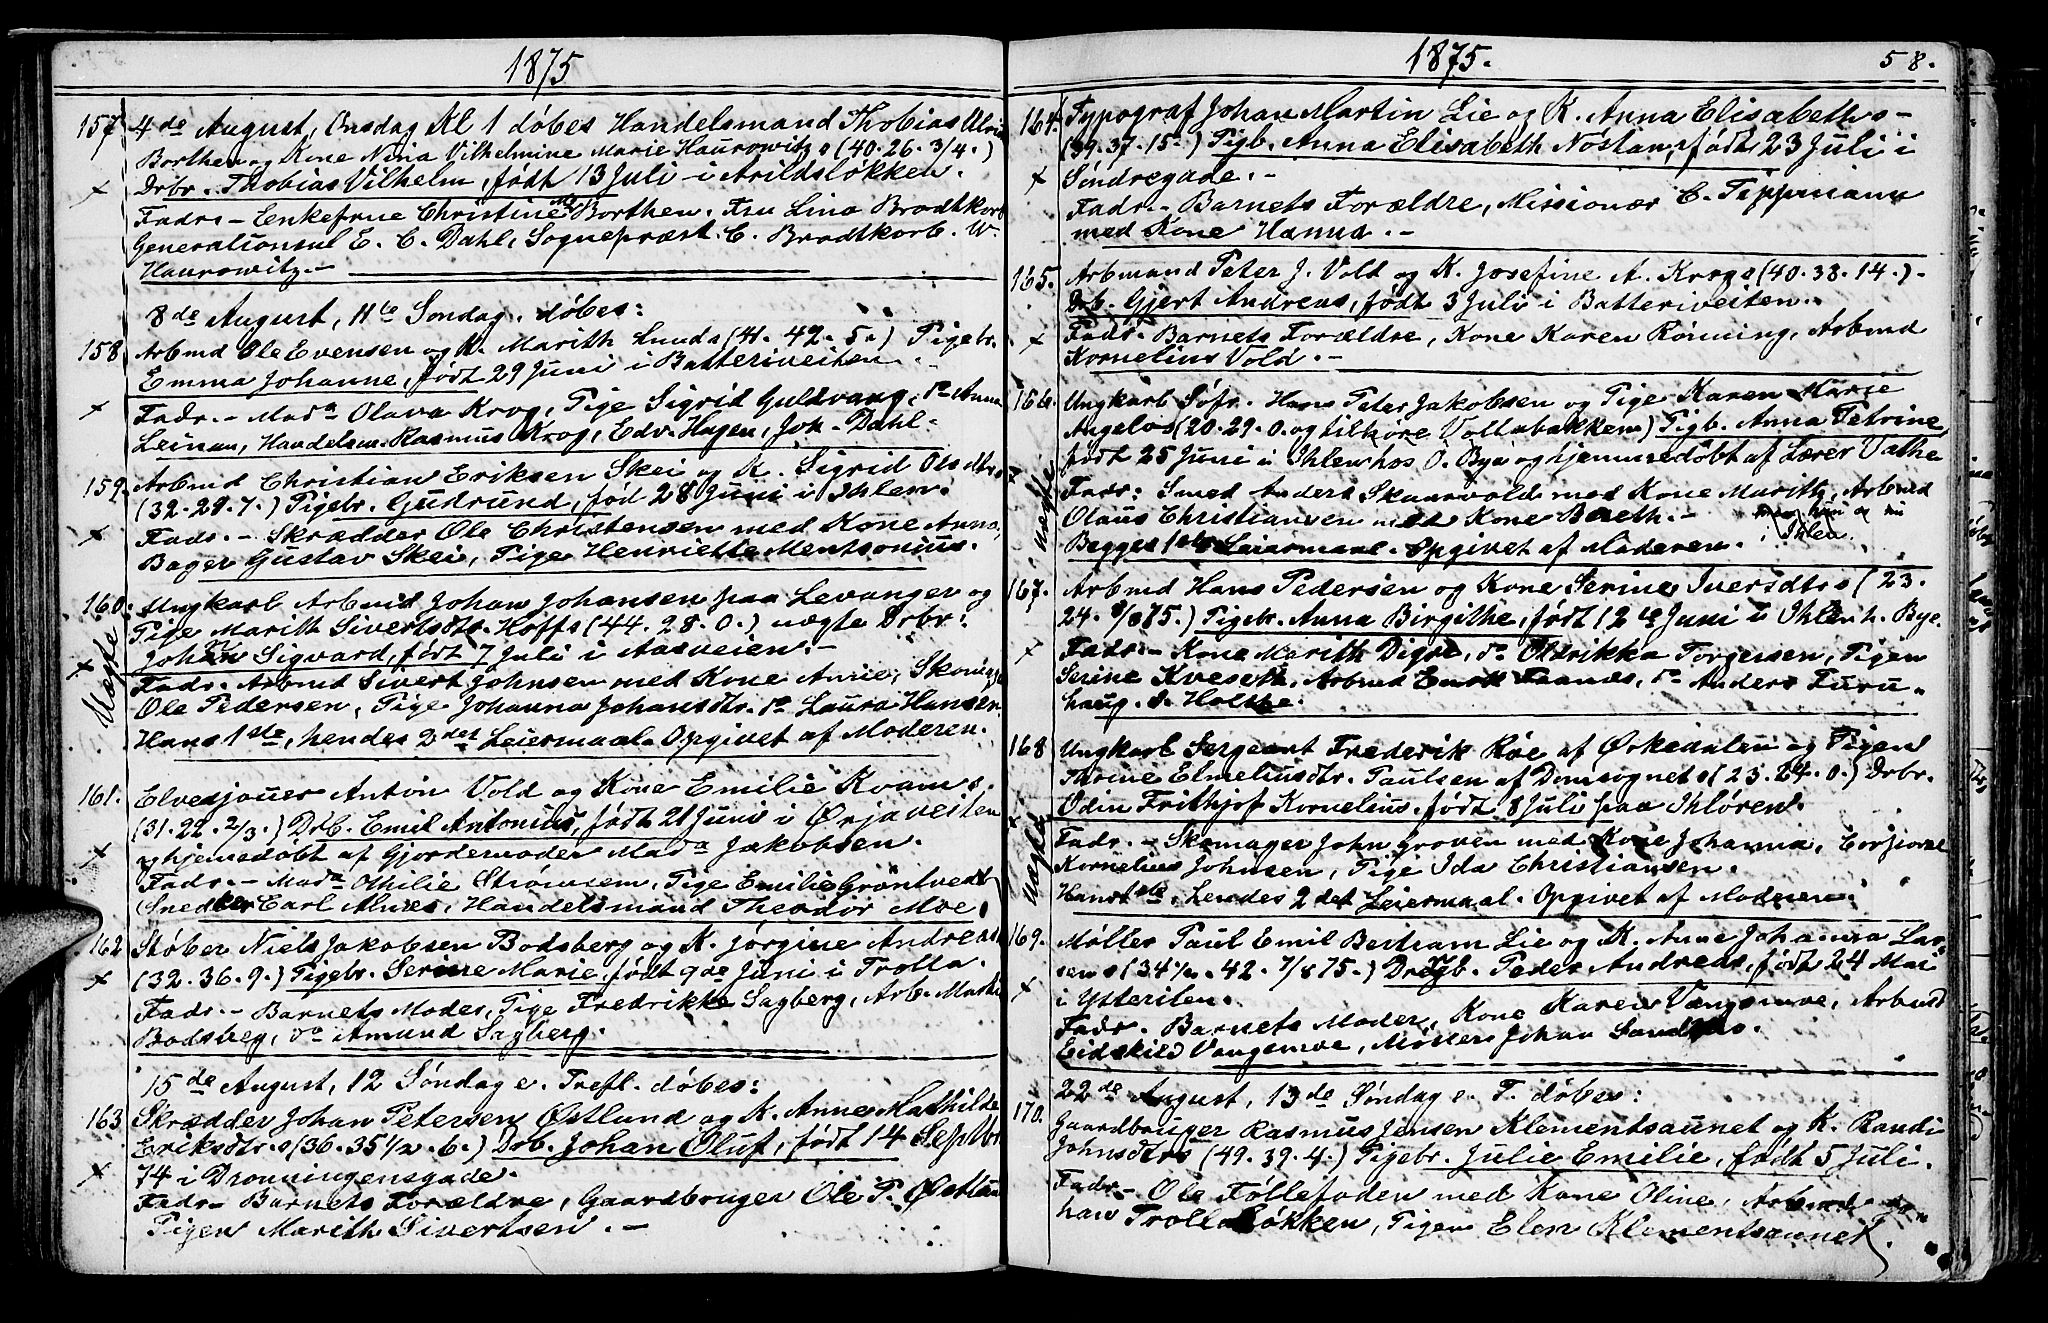 1875
157 4de August, Onsdag Kl 1 døbes Handelsmand Thobias Ulrik
Borthen og Kone Nina Vilhelmine Marie Haurowitz s (40. 26. 3/4.)
x Drbr. Thobias Vilhelm, født 13 Juli i Arildsløkken.
Fadr. - Enkefrue Christine Borthen. Fru Lina Brodtkorb
Generalconsul E. C. Dahl, Sognepræst C. Brodtkorb. W.
Haurowitz. -
8de August, 11te Søndag. døbes:
158 Arbmd Ole Evensen og K. Marith Lunds (41. 42. 5.) Pigebr.
Emma Johanne, født 29 Juni i Batteriveiten.
x Fadr. - Mada Olava Krog, Pige Sigrid Guldvang, do Anna
Leinan, Handelsm. Rasmus Krog, Edv. Hagen, Joh. Dahl -
159. Arbmd Christian Eriksen Skei og K. Sigrid Olsdtrs
(32. 29. 7.) Pigebr. Gudrund, fød 28 Juni i Ihlen.
x Fadr. - Skrædder Ole Christensen med Kone Anna,
Bager Gustav Skei, Pige Henriette Mentsonius.
160. Ungkarl Arbmd Johan Johansen paa Levanger og
Pige Marith Sivertsdtr. Hoffs (44. 28. 0.) uægte Drbr.
x Uægte Johan Sigvard, født 7 Juli i Aasveien. -
Fadr. Arbmd Sivert Johnsen med Kone Anne,
Ole Pedersen, Pige Johanna Johansdtr. do Laura Hansen.
Hans 1ste, hendes 2det Leiermaal. Opgivet af Moderen.
161. Anton Vold og Kone Emilie Kvams.
(31. 22. 2/3.) Drb. Emil Antonius, født 21 Juni i Ørjaveiten
x hjemedøbt af Gjordemoder Mada Jakobsen.
Fadr. - Mada Othilie Strømsem, Pige Emilie Grøntvedt
Snedker Carl Alnæs, Handelsmand Theodor Moe.
162 Støber Niels Jakobsen Bodsberg og K. Jørgine
x (32. 36. 9.) Pigebr. Serine Marie, født 9de Juni i Trolla.
Fadr. - Barnets Moder, Pige Fredrikke Sagberg, Arb.
Bodsberg, do Amund Sagberg.
15de August, 12 Søndag e. Trefl. døbes:
163 Skrædder Johan Petersen Østlund og K. Anne Mathilde
Eriksdtr. s (36. 35 1/2. 6.) Drb. Johan Oluf, født 14 Septbr
x 74 i Dronningensgade.
Fadr. - Barnets Forældre, Gaardbruger Ole P. Østlun
Pigen Marith Sivertsen. -
1875. 58.
164. Typograf Johan Martin Lie og K. Anna Elisabeths -
(39. 37. 15.) Pigb. Anna Elisabeth Nøstan, født 23 Juli i
x Søndregade. -
Fadr. - Barnets Forældre, Missionær C. Tippmann
med Kone Hanna. -
165. Arbmand Peter J. Vold og K. Josefine A. Krogs (40. 38. 14.) -
Drb. Gjert Andreas, født 3 Juli i Batteriveiten.
x Fadr. Barnets Forældre, Kone Karen Rønning, Arbmd
Kornelius Vold. -
166. Ungkarl Søfr. Hans Peter Jakobsen og Pige Karen Marie
Angelos (20. 29. 0. og tilhøre Vollabakken) Pigb. Anna Petrine,
x født 25 Juni i Ihlen hos O. Bye og hjemmedøbt af Lærer Vathe
Uægte Fadr: Smed Anders Skaarvold med Kone Marith, Arbmd
Olaus Christiansen med Kone Bereth. -
Begges 1ste Leiermaal. Opgivet af Moderen. Ihlen.
167. Arbmd Hans Pedersen og Kone Serine Iversdtrs (23.
24. 8/875.) Pigebr. Anna Birgithe, født 12te Juni i Ihlen h. Bye.
x Fadr. - Kone Marith Digre, do Oldrikka Torgersen, Pigen
Serine Kveseth, Arbmd Faanes, do Anders Furu-
haug. d. Holthe.
168 Ungkarl Sergeant Frederik Røe af Ørkedalen og Pigen
Thrine Elmeliusdtr. Paulsen af Domsognet s (23. 24. 0.) Drbr.
x Odin Frithjof Kornelius, født 8 Juli paa Ihløren.
Uægte Fadr. - Skomager John Groven med Kone Johanna,
Kornelius Johnsen, Pige Ida Christiansen.
Hans 1ste, hendes 2det Leiermaal. Opgivet af Moderen.
169. Møller Paul Emil Bertram Lie og K. Anne Johanna Lar-
sens (34 1/2. 42. 7/875.) Drgb. Peder Andreas, født 24 Mai
x i Ytterilen.
Fadr. Barnets Moder, Kone Karen Vangsmoe, Arbmd
Eidskild Vangsmoe, Møller Johan
22de August, 13de Søndag e. T. døbes:
170. Gaardbruger Rasmus Jensen Klementsaunet og K. Randi
Johnsdtrs (49. 39. 4.) Pigebr. Julie Emilie, født 5 Juli.
Fadr. - Ole Føllefoden med Kone Oline, Arbmd Jo-
han Trollaløkken, Pigen Elen Klementsaunet.